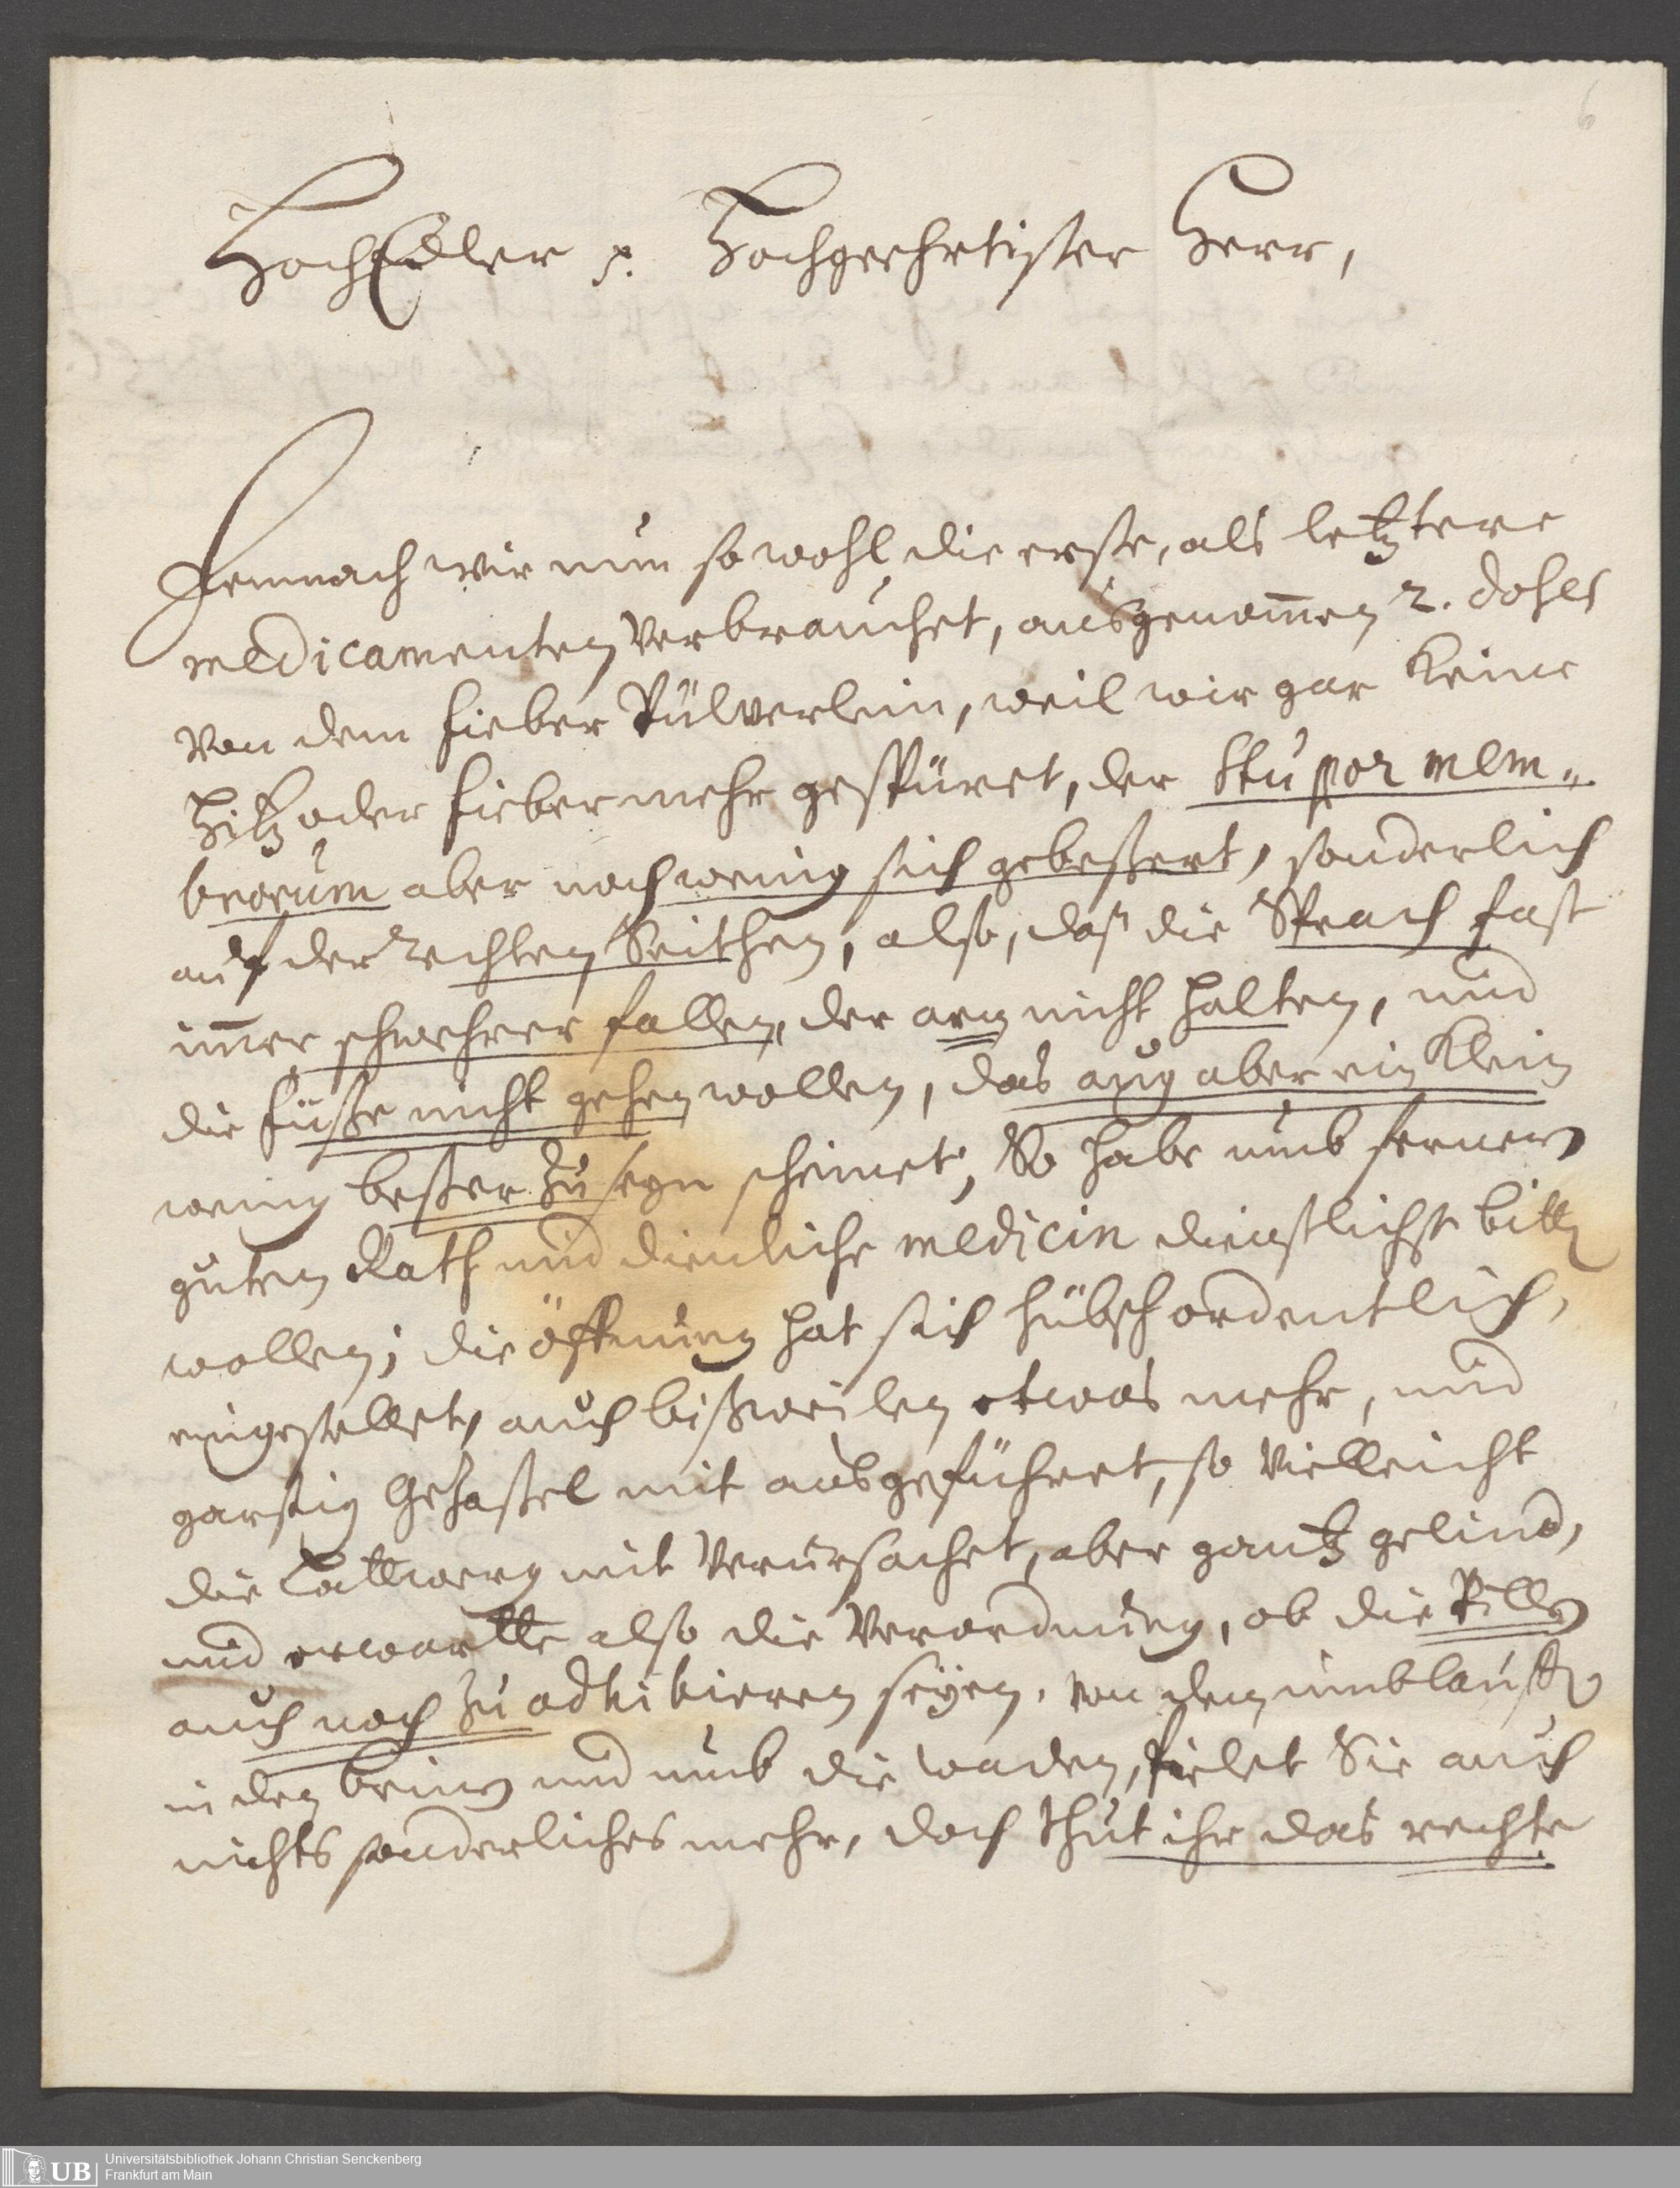 6
HochEdler p. Hochgeehrtister Herr,
Demnach wir nun so wohl die erste, als letztere
medicamenten verbrauchet, ausgenom̄en 2. doses
von dem fieber Pülverlein, weil wir gar keine
Hitz oder fieber mehr gespüret, der Stupor mem„
brorum aber noch wenig sich gebeßert, sonderlich
auf der rechten Seithen, also, daß die Sprach fast
im̄er schwehrer fallen, der arm nicht halten, und
die füße nicht gehen wollen, das aug aber ein klein
wenig beßer zu seyn scheinet, So habe umb fernern
guten Rath und dienliche medicin dienstlichst bitten
wollen; die öffnung hat sich hübsch ordentlich,
eingestellet, auch bißweilen etwas mehr, und
garstig mit ausgeführet, so vielleicht
die Lattwerg mit verursachet, aber gantz gelind,
und erwartte also die Verordnung, ob die Pillen
auch noch zu adhibieren seyen, von den umblauffen
in den beinen und umb die waden, fielet Sie auch
nichts sonderliches mehr, doch thut ihr das rechte
Universitätsbibliothek Johann Christian Senckenberg
Frankfurt am Main
UB